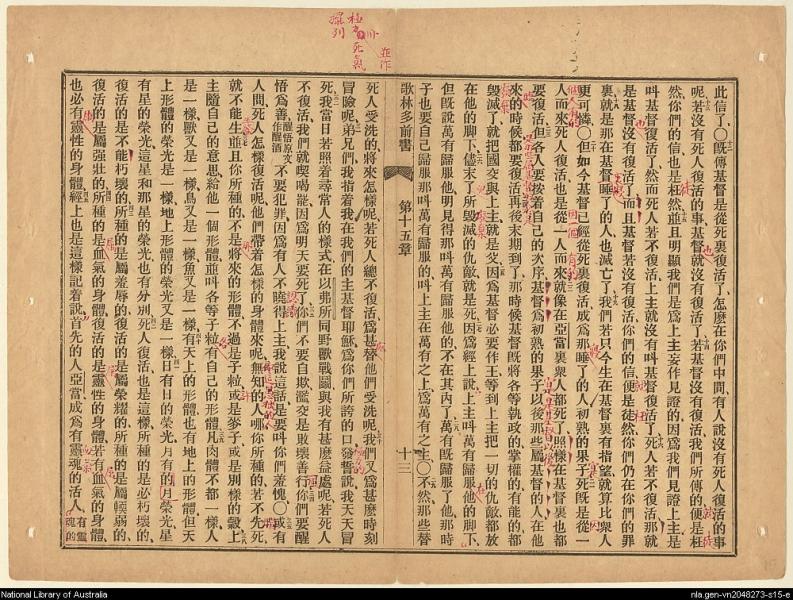 此信了〇旣傳基督是從死裏復活了怎麽在你們中間有人說沒有死人復活的事
呢若沒有死人復活的事基督就沒有復活了若基督沒有復活我們所傳的便是枉
然你們的信也是枉然並且明顯我們是爲上主妄作見證的因爲我們見證上主是
叫基督復活了然而死人若不復活上主就沒有叫基督復活了死人若不復活那就
是基督沒有復活了而且基督若沒有復活你們的信便是徒然你們仍在你們的罪
裏就是那在基督睡了的人也滅亡了我們若只今生在基督裏有指望就算比衆人
更可憐〇但如今基督已經從死裏復活成爲那睡了的人初熟的果子死旣是從一
人而來死人復活也是從一人而來就像在亞當裏衆人都死了照樣在基督裏也都
要復活但各人要按着自己的次序基督爲初熟的果子以後那些屬基督的人在他
來的時候都要復活再後末期到了那時候基督旣將各等執政的掌權的有能的都
毀滅了就把國交與上主就是父因爲基督必要作王等到上主把一切的仇敵都放
在他的脚下儘末了所毀滅的仇敵就是死因爲經上說上主叫萬有歸服他的脚下
但旣說萬有歸服他明見得那叫萬有歸服他的不在其內了萬有旣歸服了他那時
子也要自己歸服那叫萬有歸服的叫上主在萬有之上爲萬有之主〇不然那些替
歌林多前書 第十五章 十三
死人受洗的將來怎樣呢若死人總不復活爲甚麽替他們受洗呢我們又爲甚麽時刻
冒險呢弟兄們我指着我在我們的主基督耶穌爲你們所誇的口發誓說我天天冒
死我當日若照着尋常人的樣式在以弗所同野獸戰鬬與我有甚麽益處呢若死人
不復活我們就喫喝罷因爲明天要死了你們不要自欺濫交是敗壞善行你們要醒
悟爲善醒悟原文作醒酒不要犯罪因爲有人不曉得上主我說這話是要叫你們羞愧〇或有
人問死人怎樣復活呢他們帶着怎樣的身體來呢無知的人哪你所種的若不先死
就不能生並且你所種的不是將來的形體不過是子粒或是麥子或是別樣的穀上
主隨自己的意思給他一個形體並叫各等子粒有自己的形體凡肉體不都一樣人
是一樣獸又是一樣鳥又是一樣魚又是一樣有天上的形體也有地上的形體但天
上形體的榮光是一樣地上形體的榮光又是一樣日有日的榮光月有月榮光星
有星的榮光這星和那星的榮光也有分別死人復活也是這樣所種的是必朽壞的
復活的是不能朽壞的所種的是屬羞辱的復活的是屬榮耀的所種的是屬輭弱的
復活的是屬強壯的所種的是血氣的身體復活的是靈性的身體若有血氣的身體
也必有靈性的身體經上也是這樣記着說首先的人亞當成爲有靈魂的活人有靈魂的
National Library of Australia
nla.gen-vn2048273-s15-e